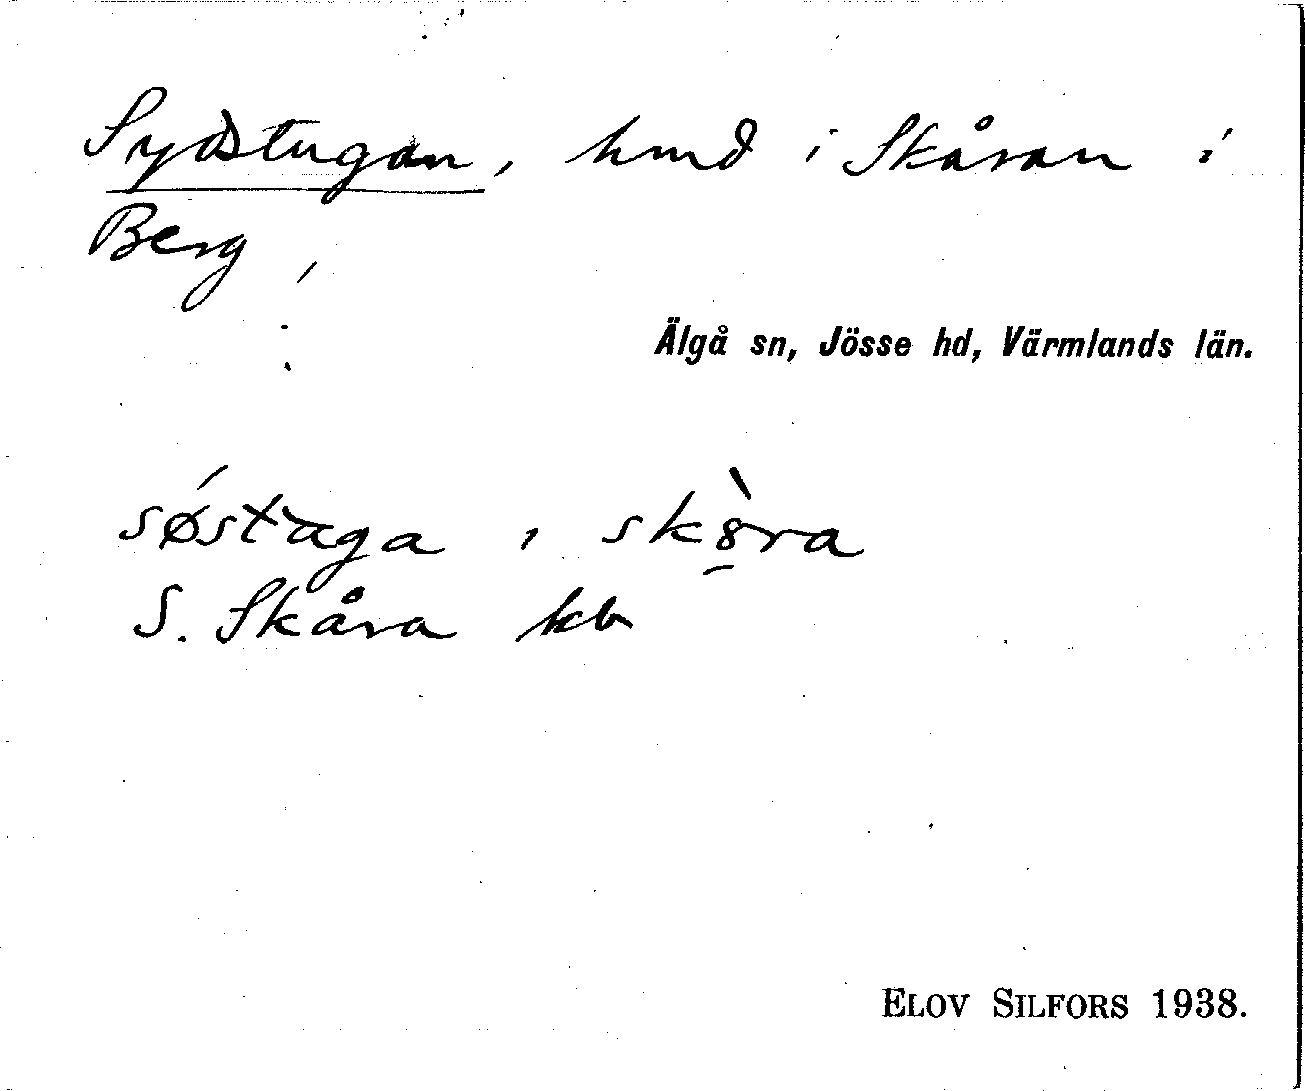 Sydstugan, hmd i Skåran i
Berg
Älgå sn, Jösse hd, Värmlands län.
søstaga i skòra
S. Skåra kb
ELOV SILFORS 1938.